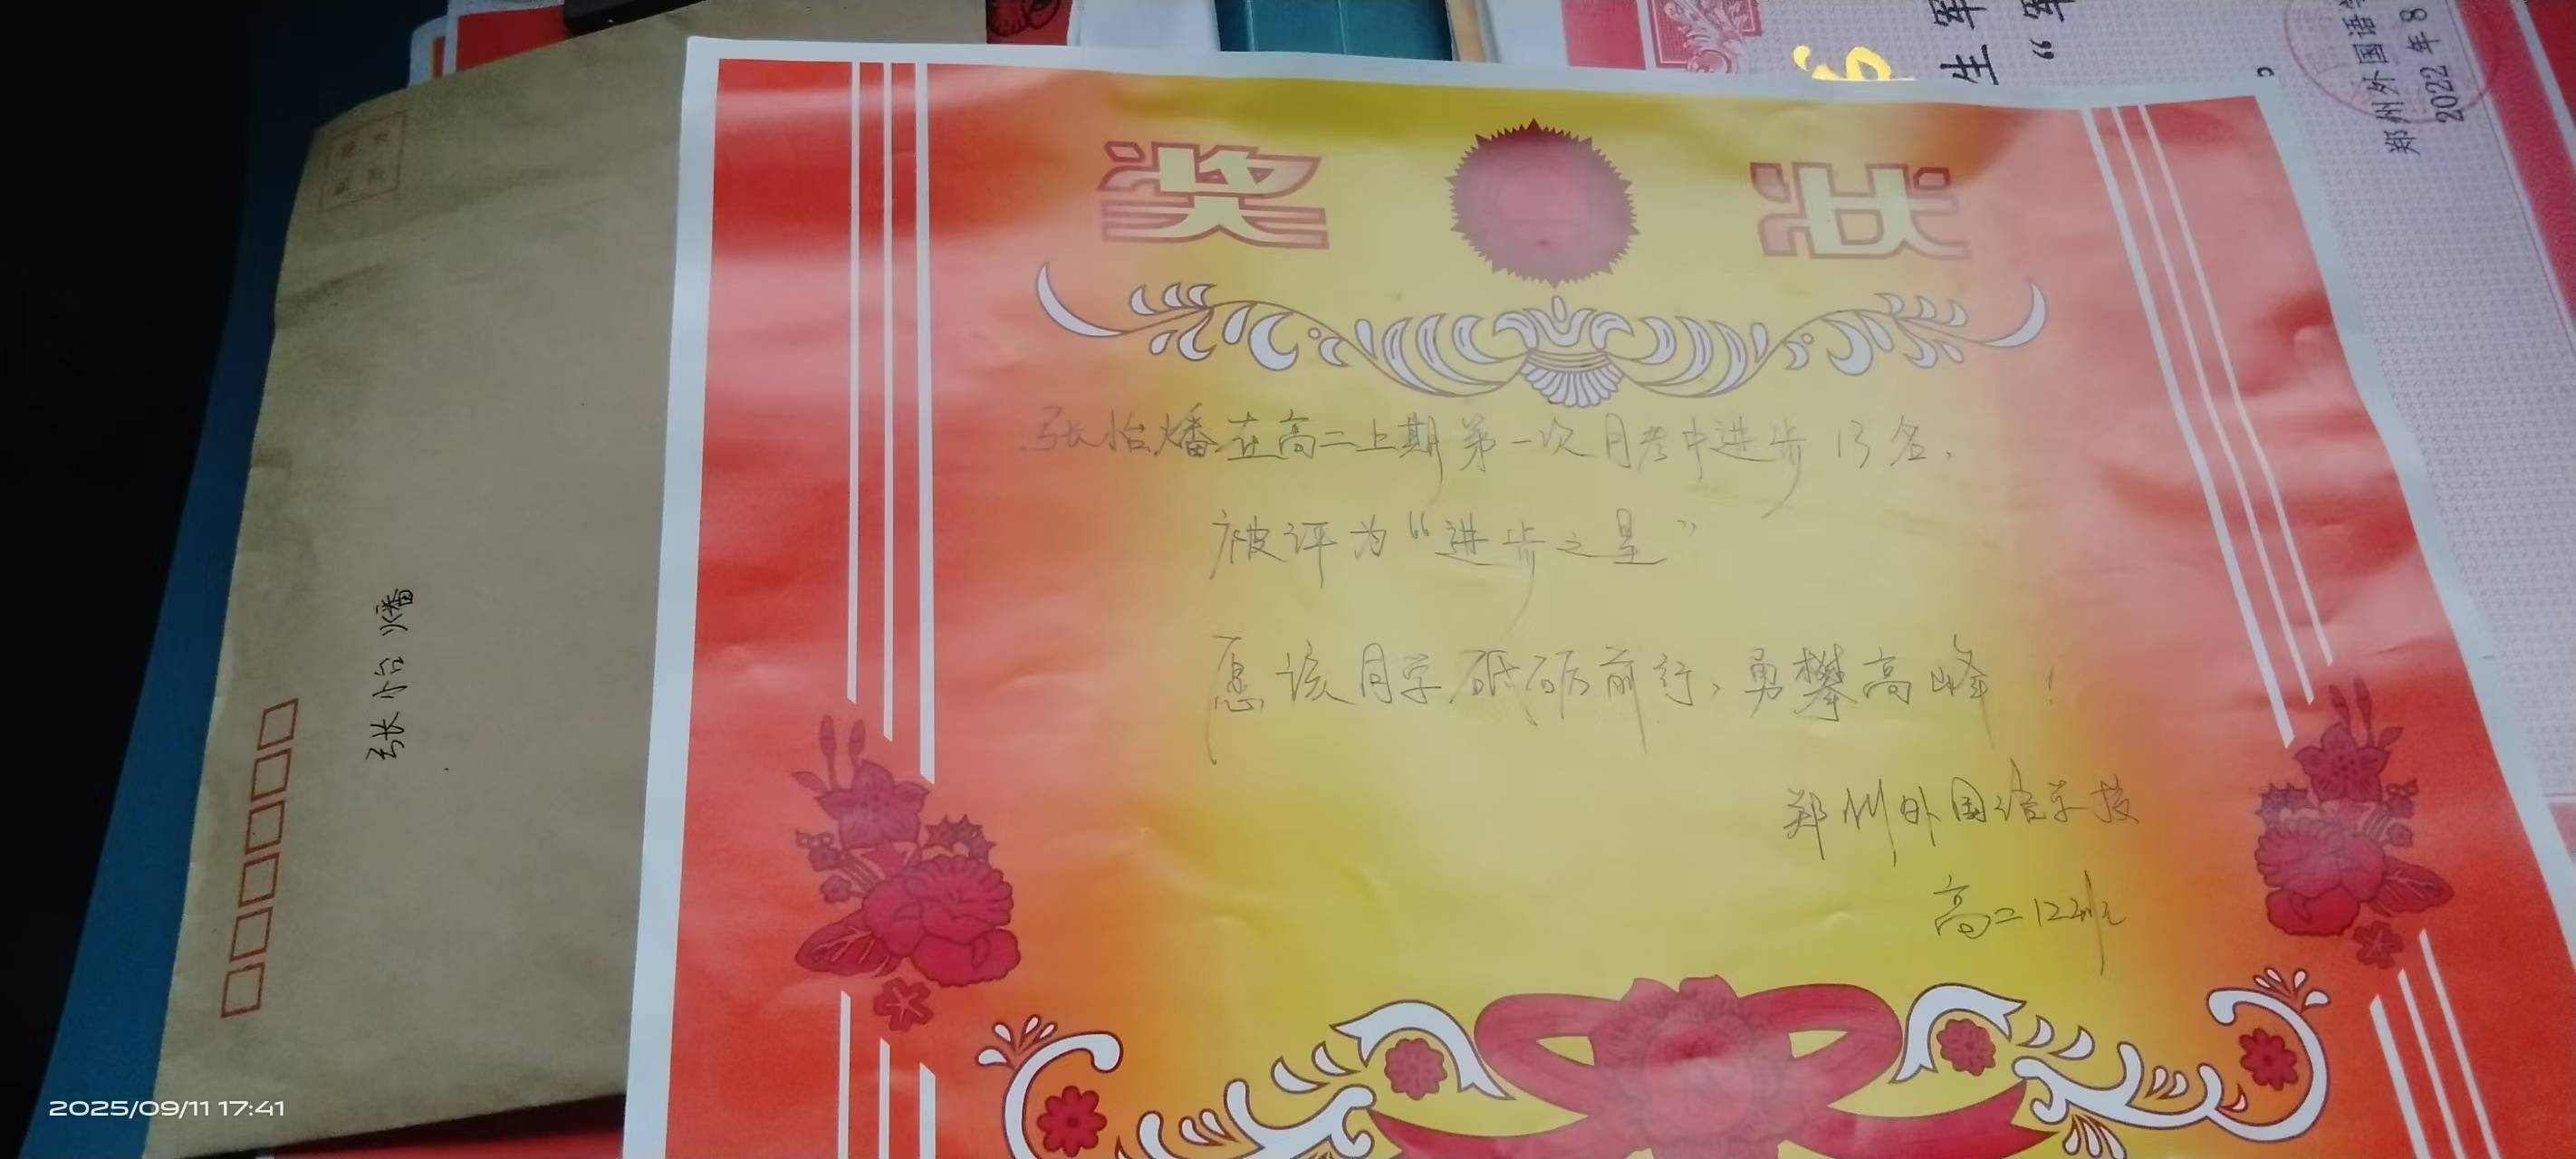 奖状
张怡燔在高二上期第一次月考中进步13名.
被评为“进步之星”
愿该同学砥砺前行,勇攀高峰!
郑州外国语学校
高二12班
张怡燔
生军
“军
郑州外国语学
2022年8
2025/09/11 17:41